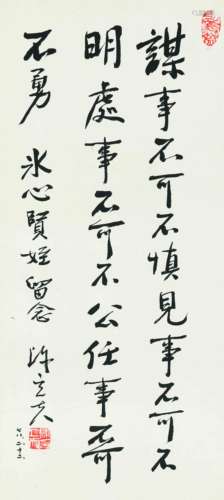 謀事不可不慎見事不可不
明處事不可不公任事不可
不勇
冰心賢姪留念
陳立夫